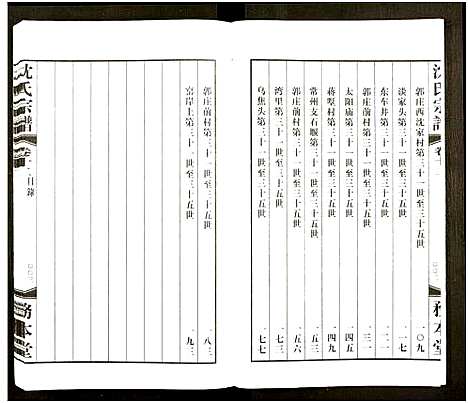 沈氏宗譜
卷十一
務本堂
郭庄西沈家村第三十一世至三十五世 一〇九
淡家头第三十一世至三十五世 一一七
东车井第三十一世至三十五世 一二一
郭庄前村第三十一世至三十五世 一三一
太阳庙第三十一世至三十五世 一四五
蒋墅村第三十一世至三十五世 一四九
常州支石堰第三十一世至三十五世 一五三
郭庄前村第三十一世至三十五世 一五六
湾里第三十一世至三十五世 一七三
乌焦头第三十一世至三十五世 一七七
郭庄前村第三十一世至三十五世 一八三
窑岸上第三十一世至三十五世 一九三
沈氏宗譜
卷十一
目録
務本堂